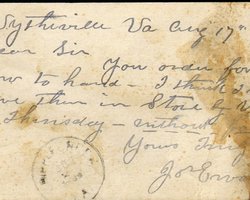 Wytheville Va Aug 17th
Dear Sir
You order for
to hand - I think
them in Store by
Thursday - without
Yours Truly